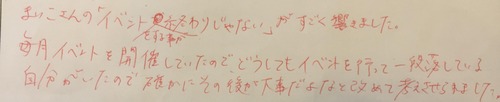 まいこさんの「イベントをする事が終わりじゃない」がすごく響きました。
毎月イベントを開催していたので、どうしてもイベントを行って一段落している
自分がいたので確かにその後が大事だよなと改めて考えさせられました。